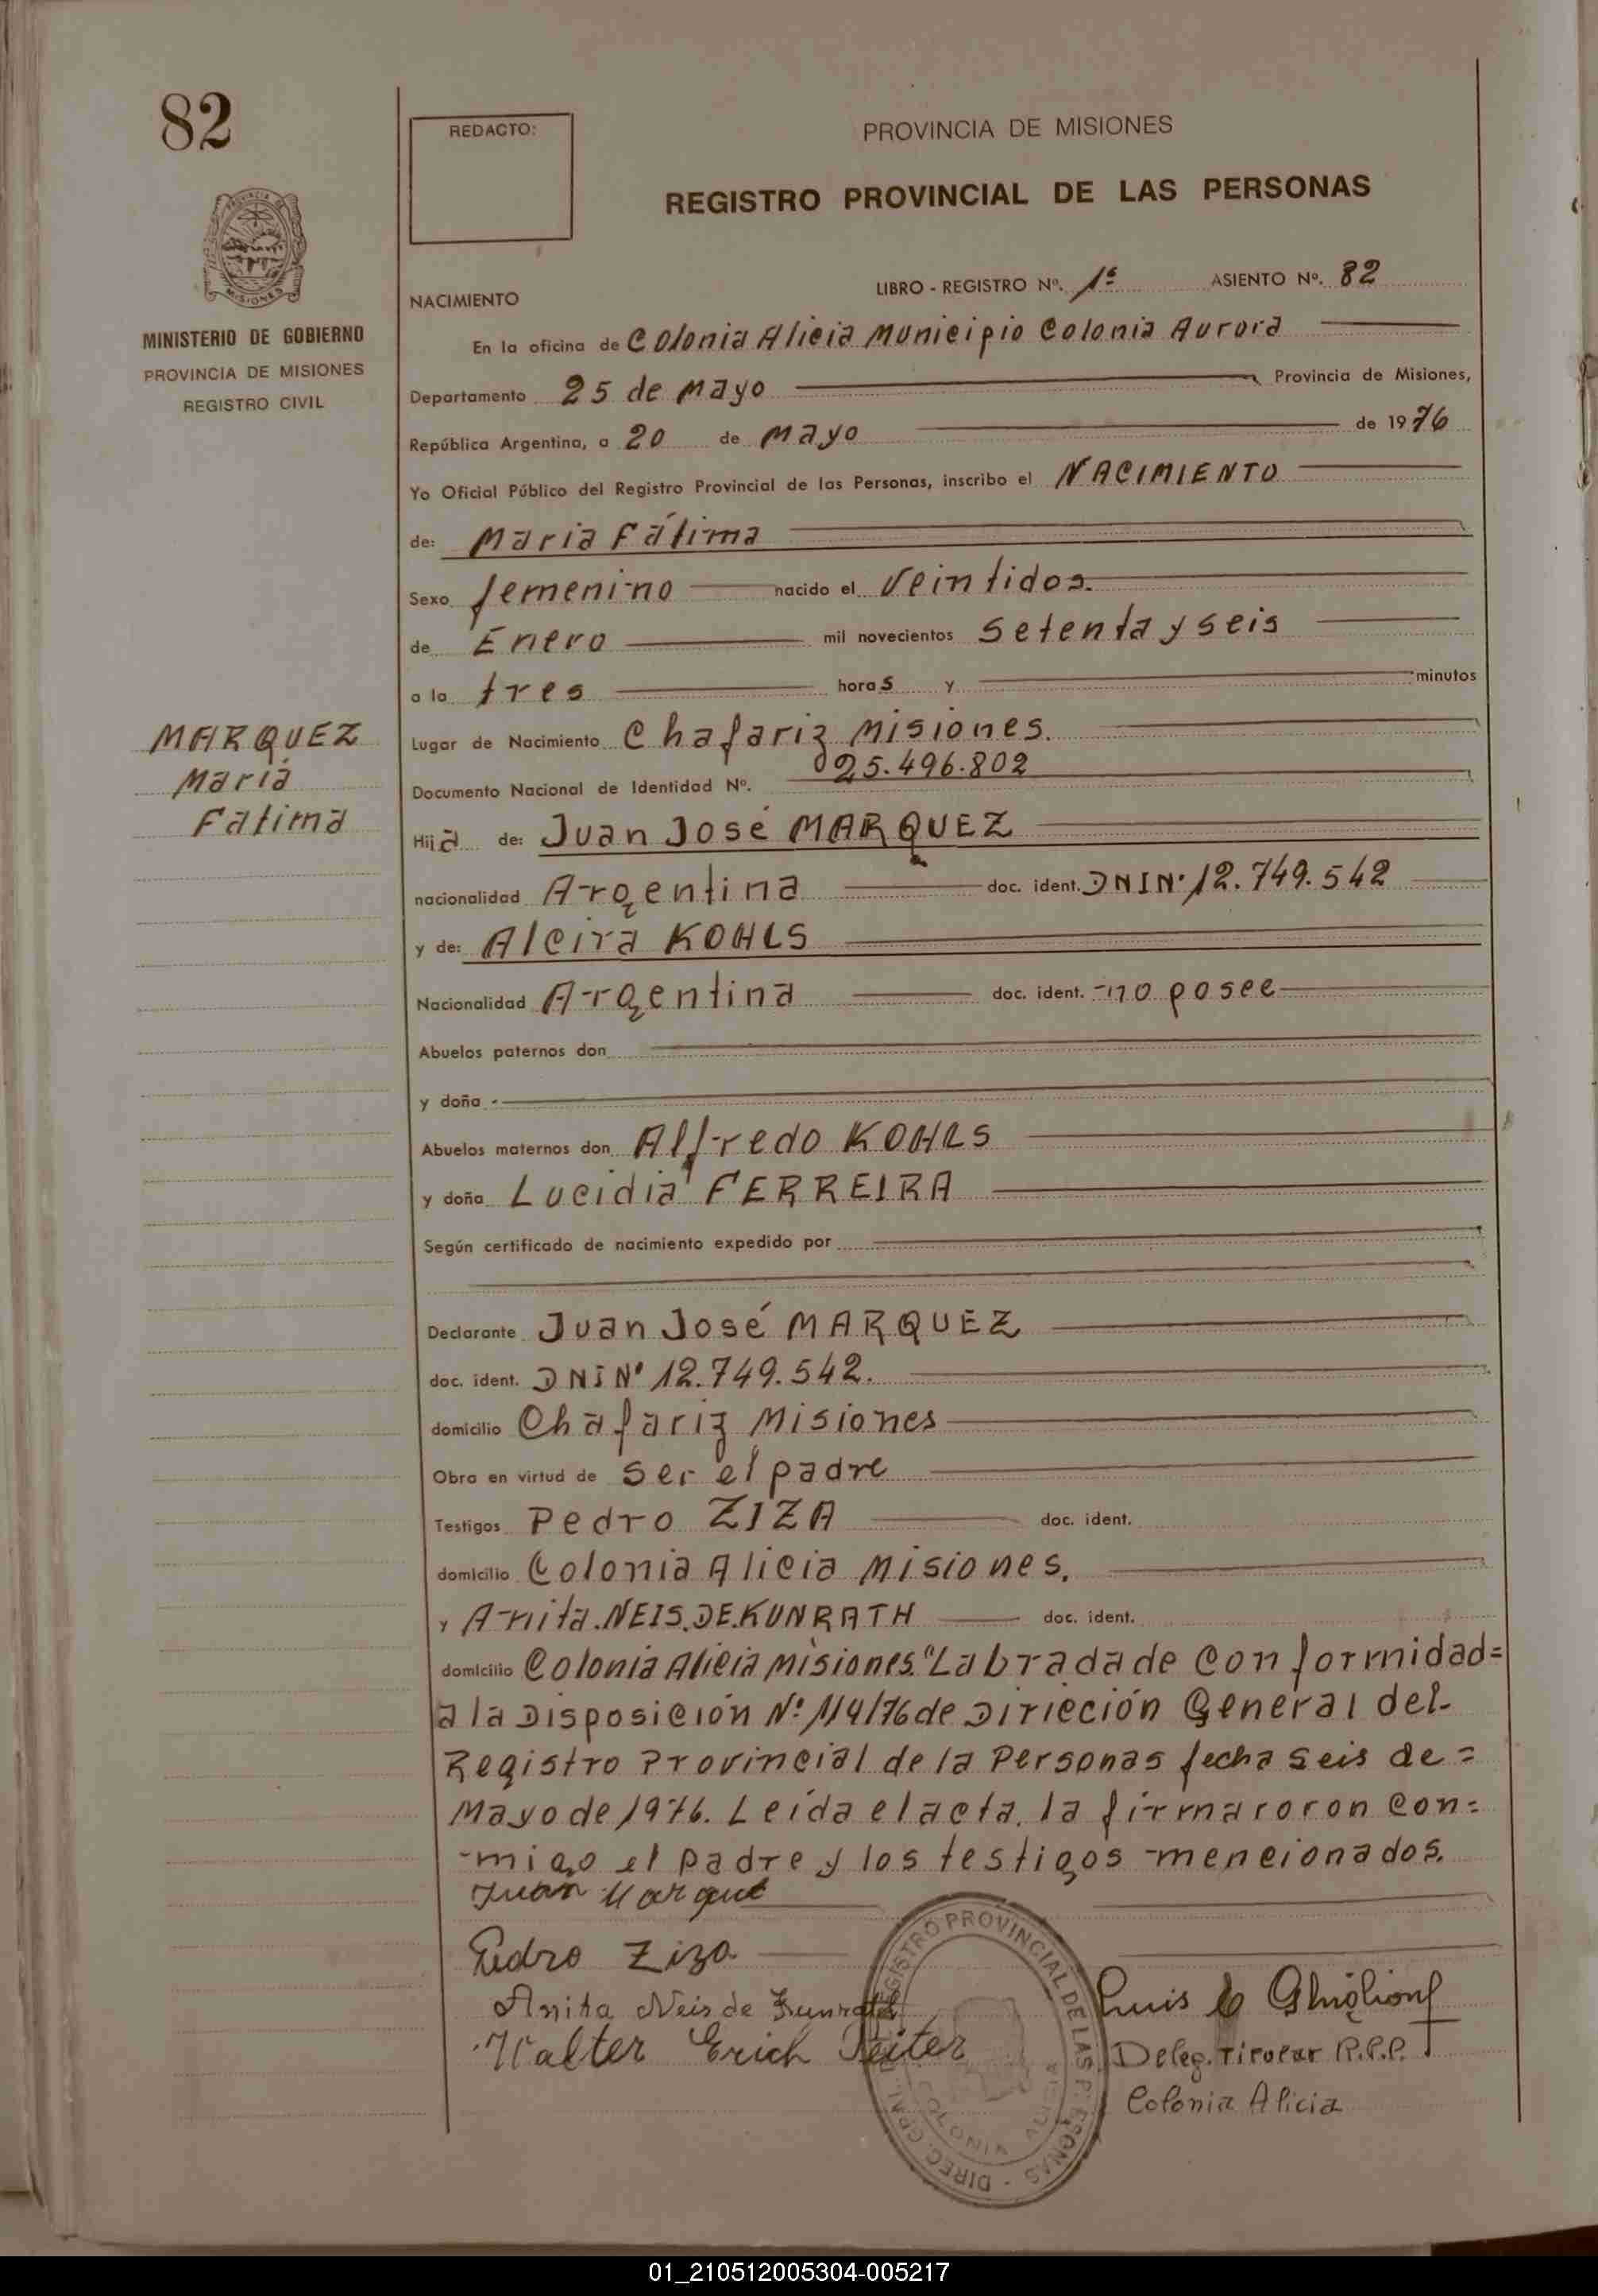 82
REDACTO:
PROVINCIA DE MISIONES
REGISTRO PROVINCIAL DE LAS PERSONAS
MISIONES
MINISTERIO DE GOBIERNO
PROVINCIA DE MISIONES
REGISTRO CIVIL
NACIMIENTO
LIBRO - REGISTRO Nº. 1º ASIENTO Nº. 82
En la oficina de Colonia Alicia Municipio Colonia Aurora
Departamento 25 de Mayo Provincia de Misiones,
República Argentina, a 20 de Mayo de 1976
Yo Oficial Público del Registro Provincial de las Personas, inscribo el NACIMIENTO
de: Maria Fátima
Sexo femenino nacido el Veintidos.
de Enero mil novecientos Setenta y seis
a la tres horas y minutos
MARQUEZ
Maria
Fatima
Lugar de Nacimiento Chafariz Misiones.
Documento Nacional de Identidad Nº. 25.496.802
Hija de: Juan José MARQUEZ
nacionalidad Argentina doc. ident. DNI Nº 12.749.542
y de: Alcira KOHLS
Nacionalidad Argentina doc. ident. no posee
Abuelos paternos don
y doña
Abuelos maternos don Alfredo KOHLS
y doña Lucidia FERREIRA
Según certificado de nacimiento expedido por
Declarante Juan José MARQUEZ
doc. ident. DNI Nº 12.749.542.
domicilio Chafariz Misiones
Obra en virtud de ser el padre
Testigos Pedro ZIZA doc. ident.
domicilio Colonia Alicia Misiones.
y Anita NEIS.DE.KUNRATH doc. ident.
domicilio Colonia Alicia Misiones. "Labrada de Conformidad=
a la Disposición Nº 114/76 de Dirieción General del-
Registro Provincial de la Personas fecha seis de =
Mayo de 1976. Leída el acta, la firmaroron con=
migo el padre y los testigos mencionados.
Juan Marque
Pedro Ziza
Anita Neis de Kunrath
Walter Erich
Luis
Deleg. Titular R.P.P.
Colonia Alicia
DIREC. GRAL. DEL REGISTRO PROVINCIAL DE LAS PERSONAS
COLONIA ALICIA
01_210512005304-005217